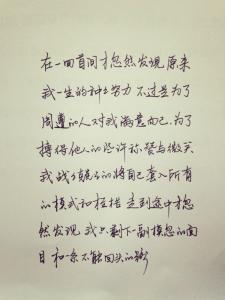 在一回首间才忽然发现 原来
我一生的种种努力 不过是为了
周遭的人对我满意而已.为了
搏得他人的些许称赞与微笑
我战战兢兢的将自己套入所有
的模式和桎梏 走到途中才忽
然发现 我只剩下一副模糊的面
目 和一条不能回头的路